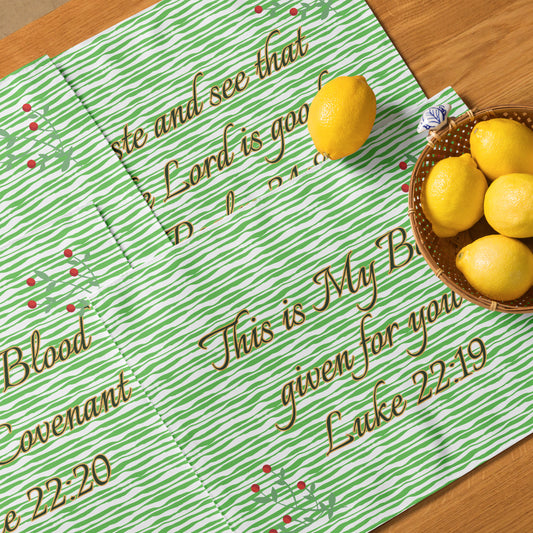 and see that
Lord is good
This is My
given for you
Luke 22:19
Blood
Covenant
22:20